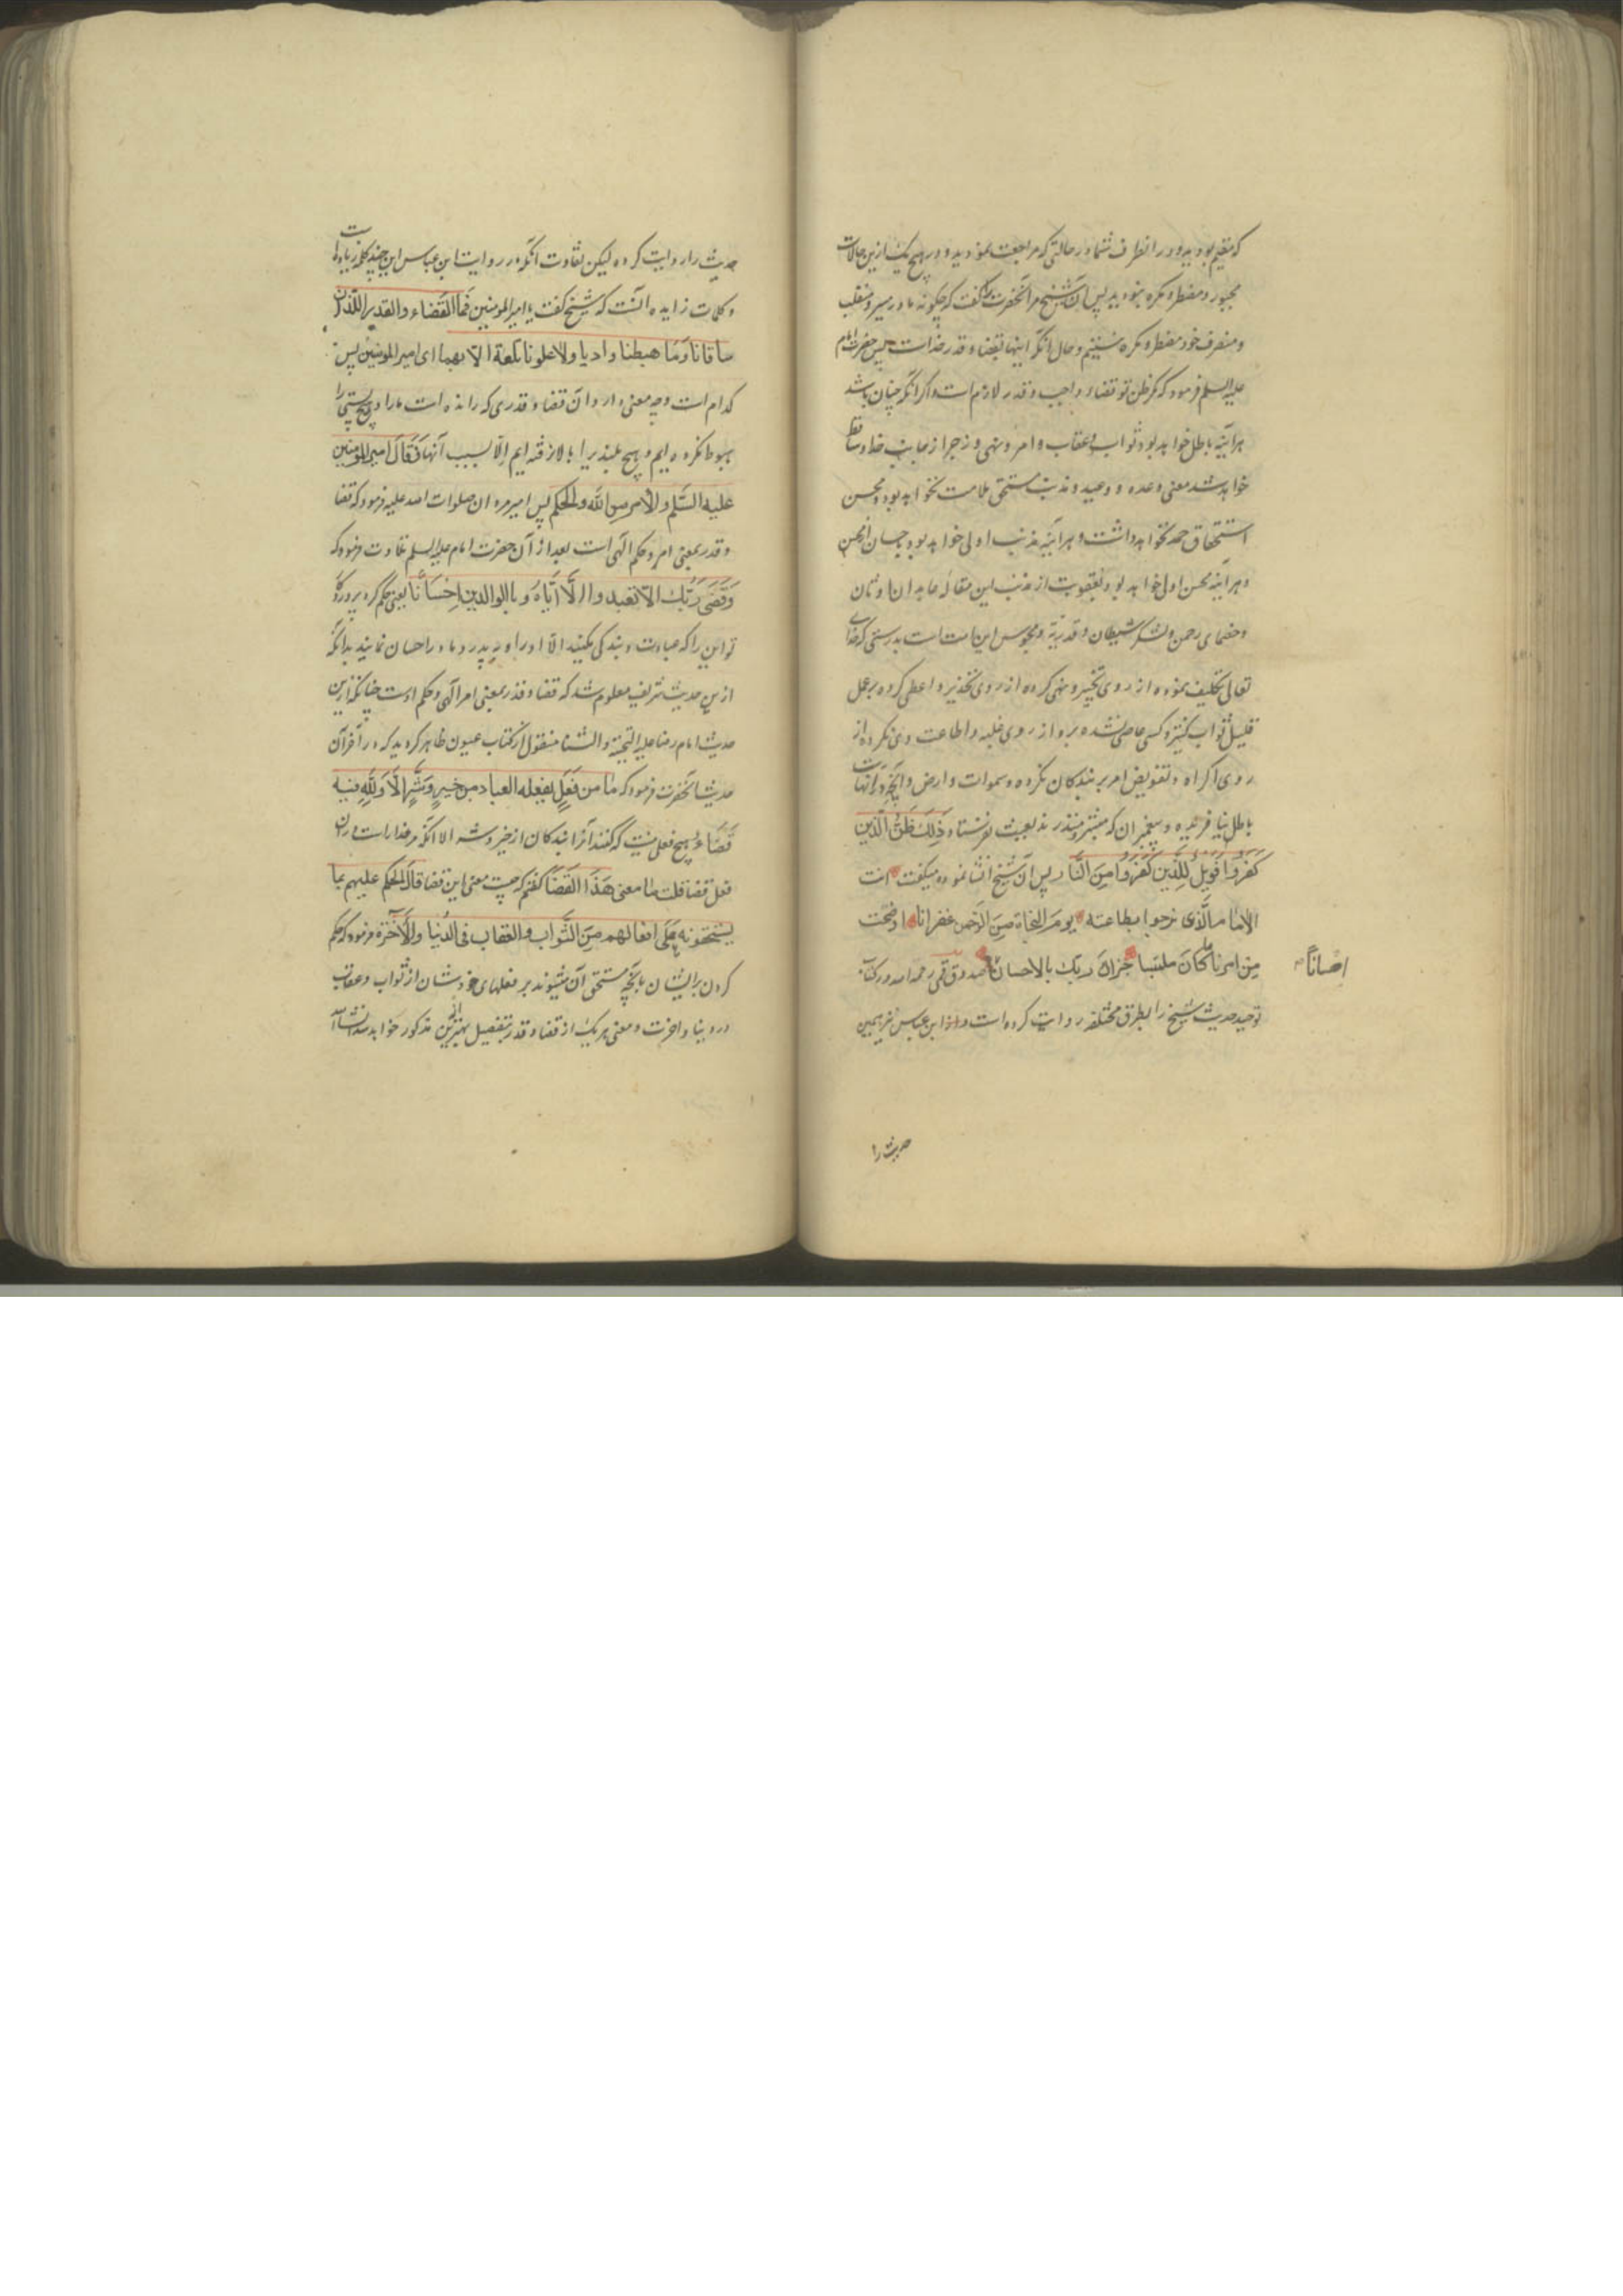 که مقیم بودید و در انصراف شما در حالتی که مراجعت نمودید و در هیچ یک ازین حالات
مجبور و مضطر و مکره نبودید پس آن شیخ مر آنحضرت را گفت که چگونه ما در مسیر و منقلب
و منصرف خود مضطر و مکره نیستیم و حال آنکه اینها بقضا و قدر خداست پس حضرت امام
علیه السلم فرمود که مگر ظن تو قضاء واجب و قدر لازم است و اگر آنکه چنان باشد
هرآینه باطل خواهد بود ثواب و عقاب و امر و نهی و زجر از جانب خدا و ساقط
خواهد شد معنی وعده و وعید و مذنب مستحق ملامت نخواهد بود و محسن
استحقاق حمد نخواهد داشت و هرآینه مذنب اولی خواهد بود باحسان از محسن
و هرآینه محسن اولی خواهد بود بعقوبت از مذنب این مقاله عابدان اوثان
و خصمای رحمن و لشکر شیطان و قدریّه و مجوس این امت است بدرستی که خدای
تعالی تکلیف نموده از روی تخییر و نهی کرده از روی تحذیر و اعطی کرده بر عمل
قلیل ثواب کثیر و کسی عاصی نشده برو از روی غلبه و اطاعت وی نکرده از
روی اکراه و تفویض امر بر بندگان نکرده و سموات و ارض و آنچه در آنهاست
باطل نیافریده و پیغمبران که مبشر و منذرند بعبث نفرستاده ذَلِكَ ظَنُّ الَّذِينَ
كَفَرُوا فَوَيْلٌ لِلَّذِينَ كَفَرُوا مِنَ النَّار پس آن شیخ انشا نموده میگفت انت
الامام الَّذی نرجوا بطاعته یومَ النجاة مِنَ الرّحمن غفرانا اوضحت
مِن امرنا ما کانَ ملتبسا جزاكَ ربّك بالاحسان صدوق قمی رحمه الله در کتاب
احْسَانًا
توحید حدیث شیخ را بطرق مختلفه روایت کرده است و از ابن عباس نیز همین
حدیث را
حدیث را روایت کرده لیکن تفاوت آنکه در روایت ابن عباس این چند کلمه زیاده است
و کلمات زایده آنست که شیخ گفت یا امیر المومنین فَمَا القَضَاء والقدر اللّذان
ساقانا وَمَا هبطنا وادیا ولا علونا تلعة الّا بهما ای امیر المومنین پس
کدام است و چه معنی دارد آن قضا و قدری که رانده است ما را و هیچ پستی را
هبوط نکرده ایم و هیچ بلندی را بالا نرفته ایم اِلّا بسبب آنها فَقَالَ امیر المومنین
علیه السَّلم والأمر مِن الله والحُکم پس امیر مردان صلوات الله علیه فرمود که قضا
و قدر بمعنی امر و حکم الهی است بعد از آن حضرت امام علیه السلم تلاوت فرمود که
وَقَضَى رَبُّكَ الّا تعبدوا الَّا اَیّاهُ وبالوالدین اِحْسَانًا یعنی حکم کرده پروردگار
تو این را که عبادت و بندگی مکنید الّا او را و بپدر و مادر احسان نمایید بدانکه
ازین حدیث شریف معلوم شد که قضا و قدر بمعنی امر الهی و حکم اوست چنانکه ازین
حدیث امام رضا علیه التحیّة والثنا منقول از کتاب عیون ظاهر گردید که در آخر آن
حدیث آنحضرت فرمود که مَا من فعلٍ یفعله العباد من خیرٍ وَشرٍّ الّا وَلِلّهِ فیه
قَضَاء هیچ فعلی نیست که کنند آنرا بندگان از خیر و شر الا آنکه مر خدا راست در آن
فعل قضا قلت ما معنی هَذَا القَضَا گفتم که چیست معنی این قضا قالَ الحکم علیهم بما
یستحقونه عَلَى افعالهم مِنَ الثَّواب والعقاب فی الدُّنیا والآخرة فرمود که حکم
کردن بر ایشان بآنچه مستحق آن میشوند بر فعلهای خودشان از ثواب و عقاب
در دنیا و آخرت و معنی هر یک از قضا و قدر بتفصیل بهترین مذکور خواهد شد انشاالله